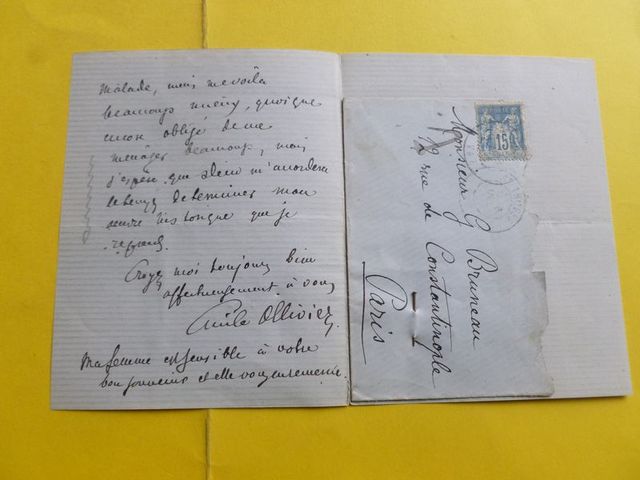 malade, mais me voilà
beaucoup mieux, quoique
encore obligé de me
ménager beaucoup, mais
j'espère que Dieu m'accordera
le temps de terminer mon
œuvre historique que je
reprends.
Croyez moi toujours bien
affectueusement à vous
Emile Ollivier
Ma femme est sensible à votre
bon souvenir et elle vous en remercie.
15
Monsieur G Bruneau
rue de Constantinople
Paris